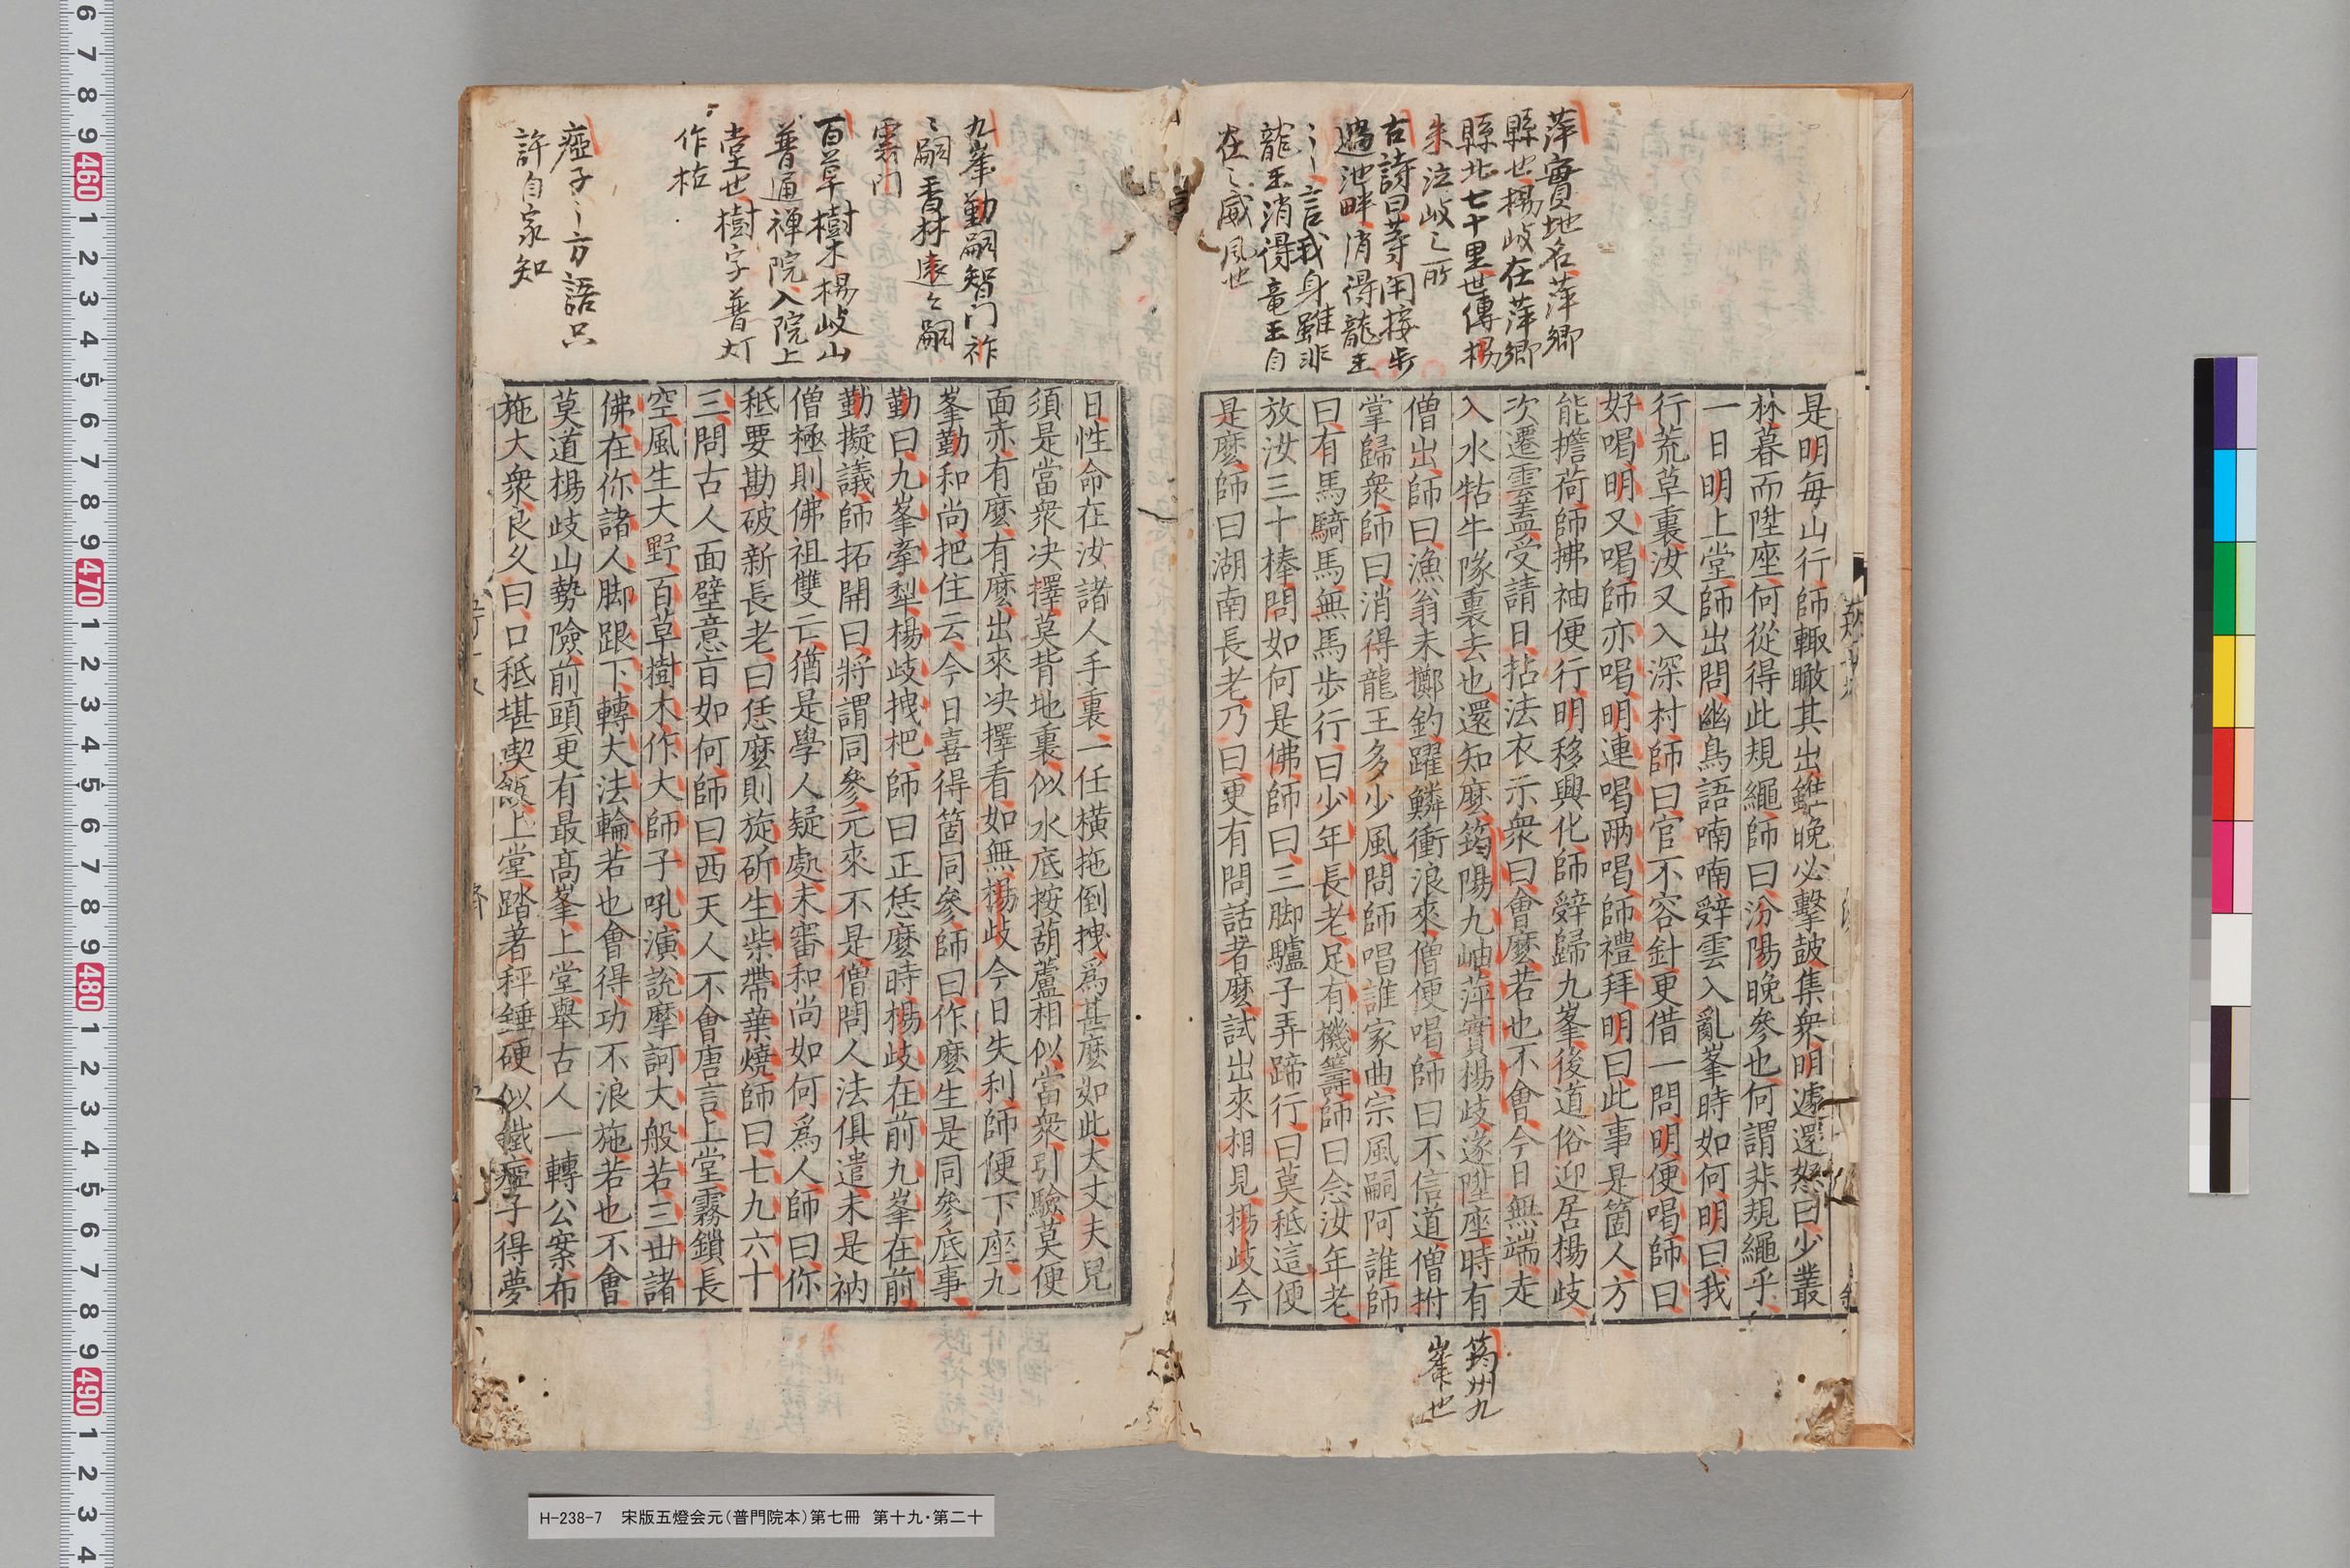 萍實地名萍郷
縣也楊岐在萍郷
縣北七十里世傳楊
朱泣岐之所
古詩曰等閑按步
過池畔消得龍王
言我身雖非
龍王消得竜王自
在之威風也
是明每山行師輙瞰其出雖晚必擊鼓集衆明遽還怒曰少叢
林暮而陞座何從得此規繩師曰汾陽晚參也何謂非規繩乎
一日明上堂師出問幽鳥語喃喃辝雲入亂峯時如何明曰我
行荒草裏汝又入深村師曰官不容針更借一問明便喝師曰
好喝明又喝師亦喝明連喝兩喝師禮拜明曰此事是箇人方
能擔荷師拂袖便行明移興化師辝歸九峯後道俗迎居楊岐
次遷雲蓋受請日拈法衣示衆曰會麽若也不會今日無端走
入水牯牛隊裏去也還知麽筠陽九岫萍實楊岐遂陞座時有
僧出師曰漁翁未擲釣躍鱗衝浪來僧便喝師曰不信道僧拊
掌歸衆師曰消得龍王多少風問師唱誰家曲宗風嗣阿誰師
曰有馬騎馬無馬步行曰少年長老足有機籌師曰念汝年老
放汝三十棒問如何是佛師曰三脚驢子弄蹄行曰莫秪這便
是麽師曰湖南長老乃曰更有問話者麽試出來相見楊岐今
筠州九
峯也
九峯勤嗣智門祚
〻嗣香林遠々嗣
雲門
百草樹木楊岐山
普通禅院入院上
堂也樹字普灯
作枯
瘂子〻方語只
許自家知
日性命在汝諸人手裏一任橫拖倒拽爲甚麽如此大丈夫兒
須是當衆决擇莫背地裏似水底按葫蘆相似當衆引驗莫便
面赤有麽有麽出來决擇看如無楊岐今日失利師便下座九
峯勤和尚把住云今日喜得箇同參師曰作麽生是同參底事
勤曰九峯牽犁楊岐拽杷師曰正恁麽時楊岐在前九峯在前
勤擬議師拓開曰將謂同參元來不是僧問人法俱遣未是衲
僧極則佛祖雙亡猶是學人疑處未審和尚如何爲人師曰你
秪要勘破新長老曰恁麽則旋斫生柴帶葉燒師曰七九六十
三問古人面壁意旨如何師曰西天人不會唐言上堂霧鎖長
空風生大野百草樹木作大師子吼演說摩訶大般若三丗諸
佛在你諸人脚跟下轉大法輪若也會得功不浪施若也不會
莫道楊岐山勢險前頭更有最高峯上堂舉古人一轉公案布
施大衆良久曰口秪堪喫飯上堂踏著秤錘硬似鐵瘂子得夢
H-238-7　宋版五燈会元（普門院本）第七冊　第十九・第二十